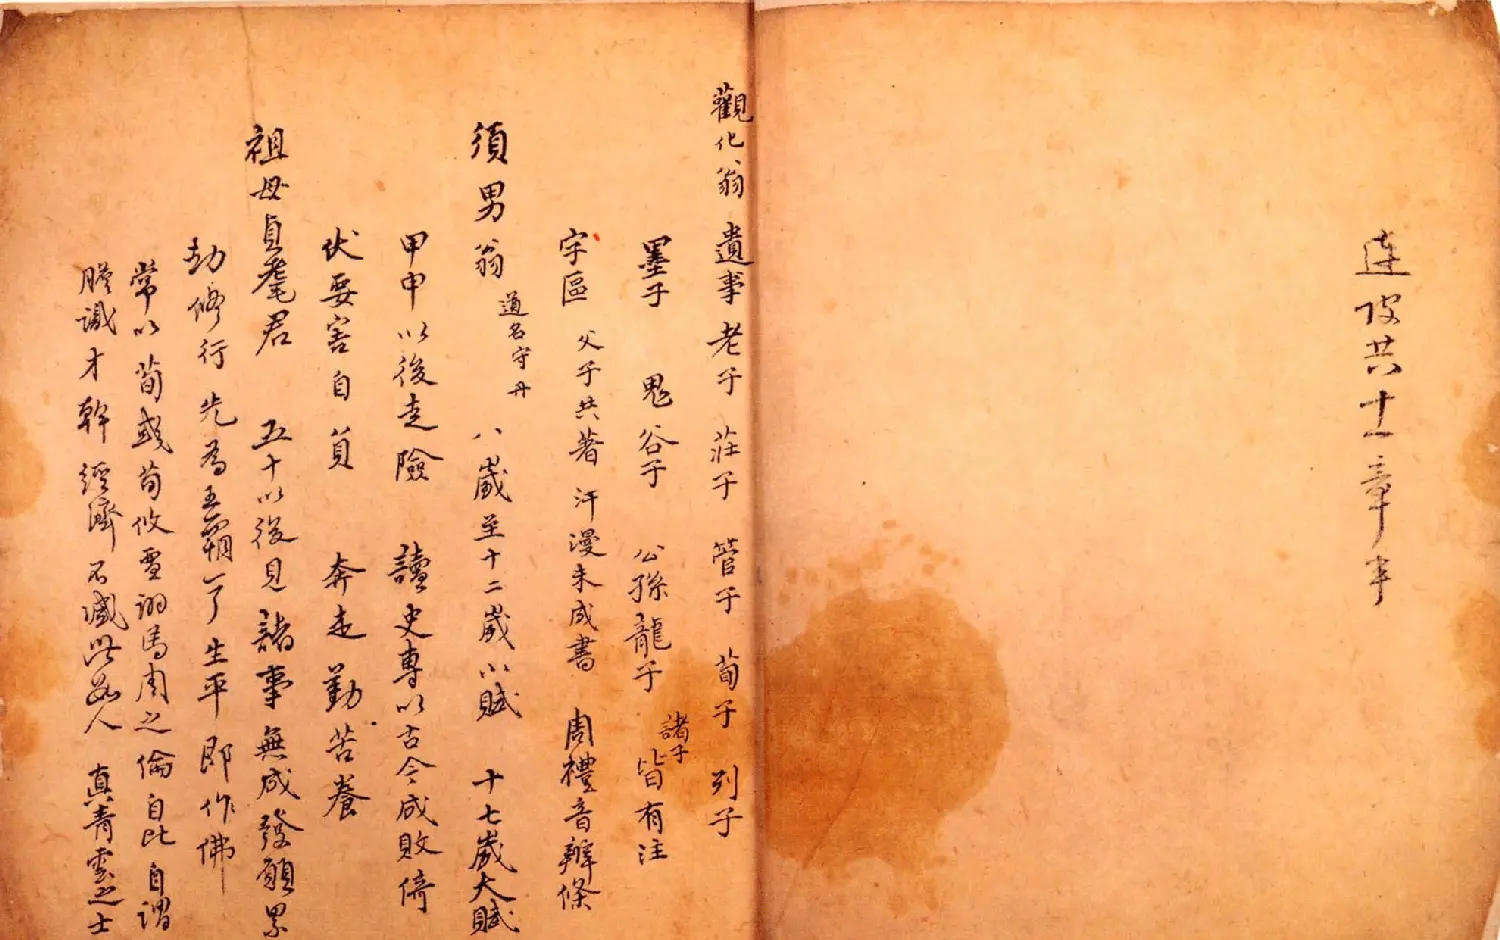 連皮共十一章半
觀化翁遺事老子 莊子 管子 荀子 列子
墨子 鬼谷子 公孫龍子 諸子皆有注
字區 父子共著汗漫未成書 周禮音辨條
須男翁 道名守丹 八歲至十二歲小賦 十七歲大賦
甲申以後走險 讀史專以古今成敗倚
伏要害自負 奔走勤苦養
祖母貞耄君 五十以後見諸事無成發願累
劫修行先為王霸了生平即作佛
常以荀彧荀攸雪翊馬周之倫自比自謂
膽識才幹經濟不減此數人 真青雲之士